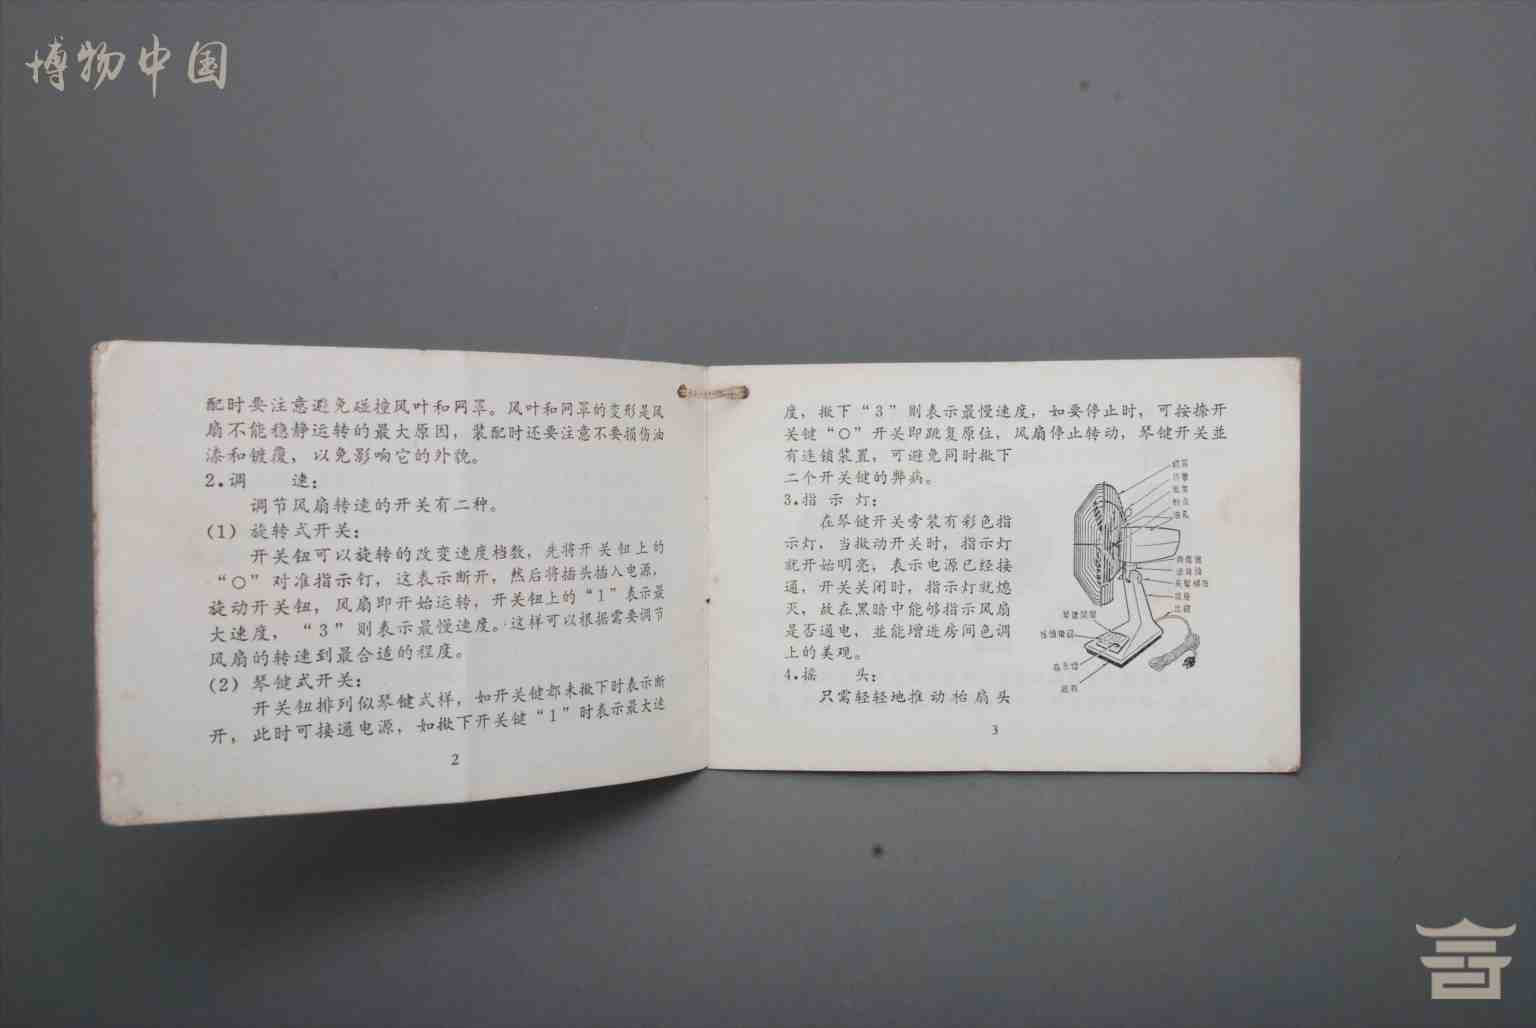 博物中国
配时要注意避免碰撞风叶和网罩。风叶和网罩的变形是风
扇不能稳静运转的最大原因，装配时还要注意不要损伤油
漆和镀覆，以免影响它的外貌。
2.调　　速：
调节风扇转速的开关有二种。
(1) 旋转式开关：
开关钮可以旋转的改变速度档数，先将开关钮上的
“○”对准指示钉，这表示断开，然后将插头插入电源，
旋动开关钮，风扇即开始运转，开关钮上的“1”表示最
大速度，“3”则表示最慢速度。这样可以根据需要调节
风扇的转速到最合适的程度。
(2) 琴键式开关：
开关钮排列似琴键式样，如开关键都未揿下时表示断
开，此时可接通电源，如揿下开关键“1”时表示最大速
2
度，揿下“3”则表示最慢速度，如要停止时，可按捺开
关键“○”开关即跳复原位，风扇停止转动，琴键开关並
有连锁装置，可避免同时揿下
二个开关键的弊病。
3.指 示 灯：
在琴键开关旁装有彩色指
示灯，当揿动开关时，指示灯
就开始明亮，表示电源已经接
通，开关关闭时，指示灯就熄
灭，故在黑暗中能够指示风扇
是否通电，並能增进房间色调
上的美观。
4.摇　　头：
只需轻轻地推动枱扇头
3